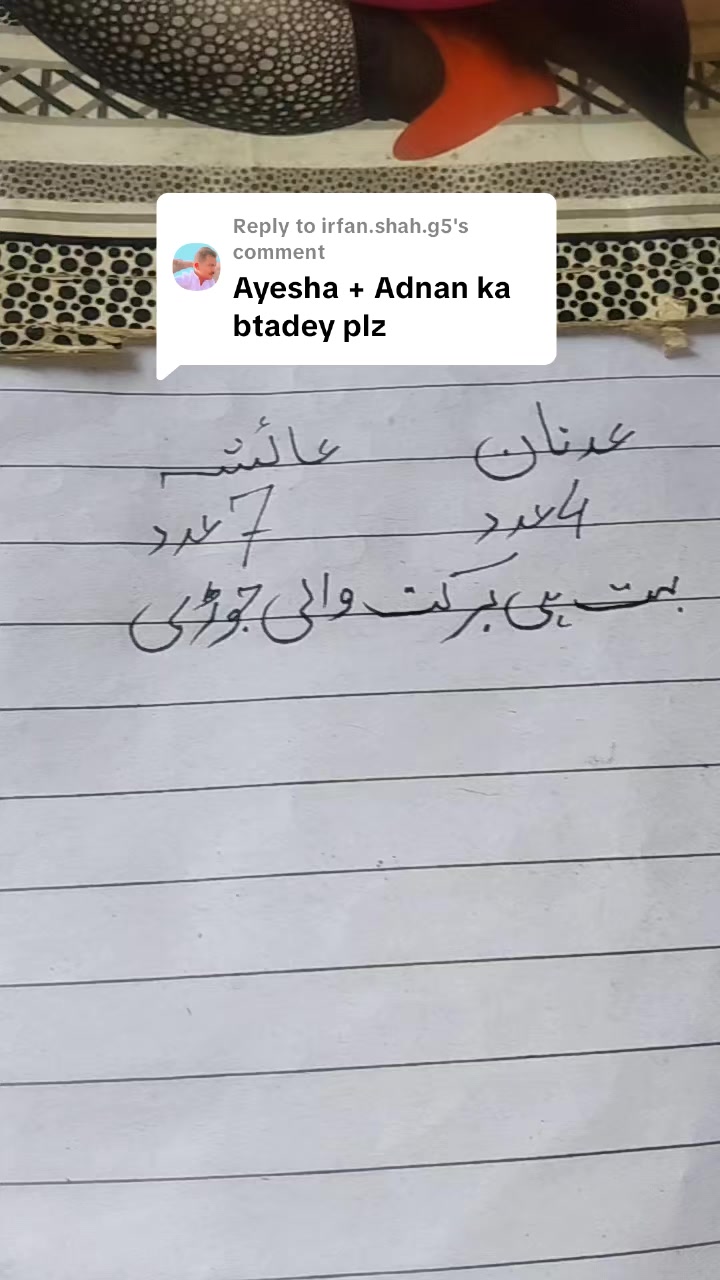 Reply to irfan.shah.g5's
comment
Ayesha + Adnan ka
btadey plz
عدنان عائشہ
4عدد 7عدد
بہت ہی برکت والی جوڑی